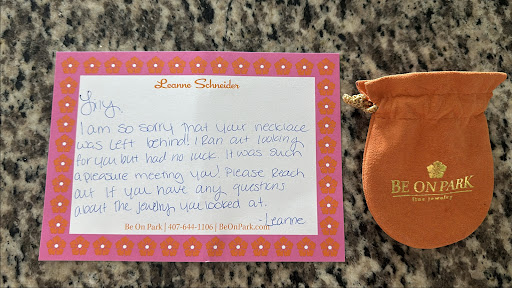 Leanne Schneider
Lily,
I am so sorry that your necklace
was left behind! I Ran out looking
for you but had no luck. It was such
a pleasure meeting you! Please Reach
out if you have any questions
about the jewelry you looked at.
-Leanne
Be On Park | 407-644-1106 | BeOnPark.com
BE ON PARK
Fine Jewelry